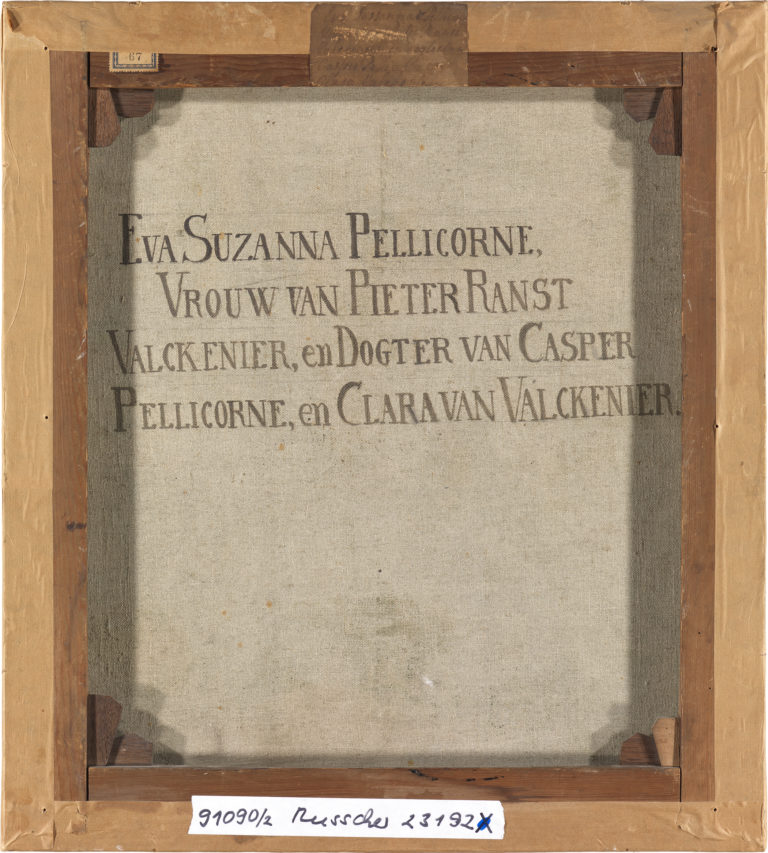 67
EVA SUZANNA PELLICORNE,
VROUW VAN PIETER RANST
VALCKENIER, en DOGTER VAN CASPER
PELLICORNE, en CLARA VAN VALCKENIER.
91090/2 Musscher 23192